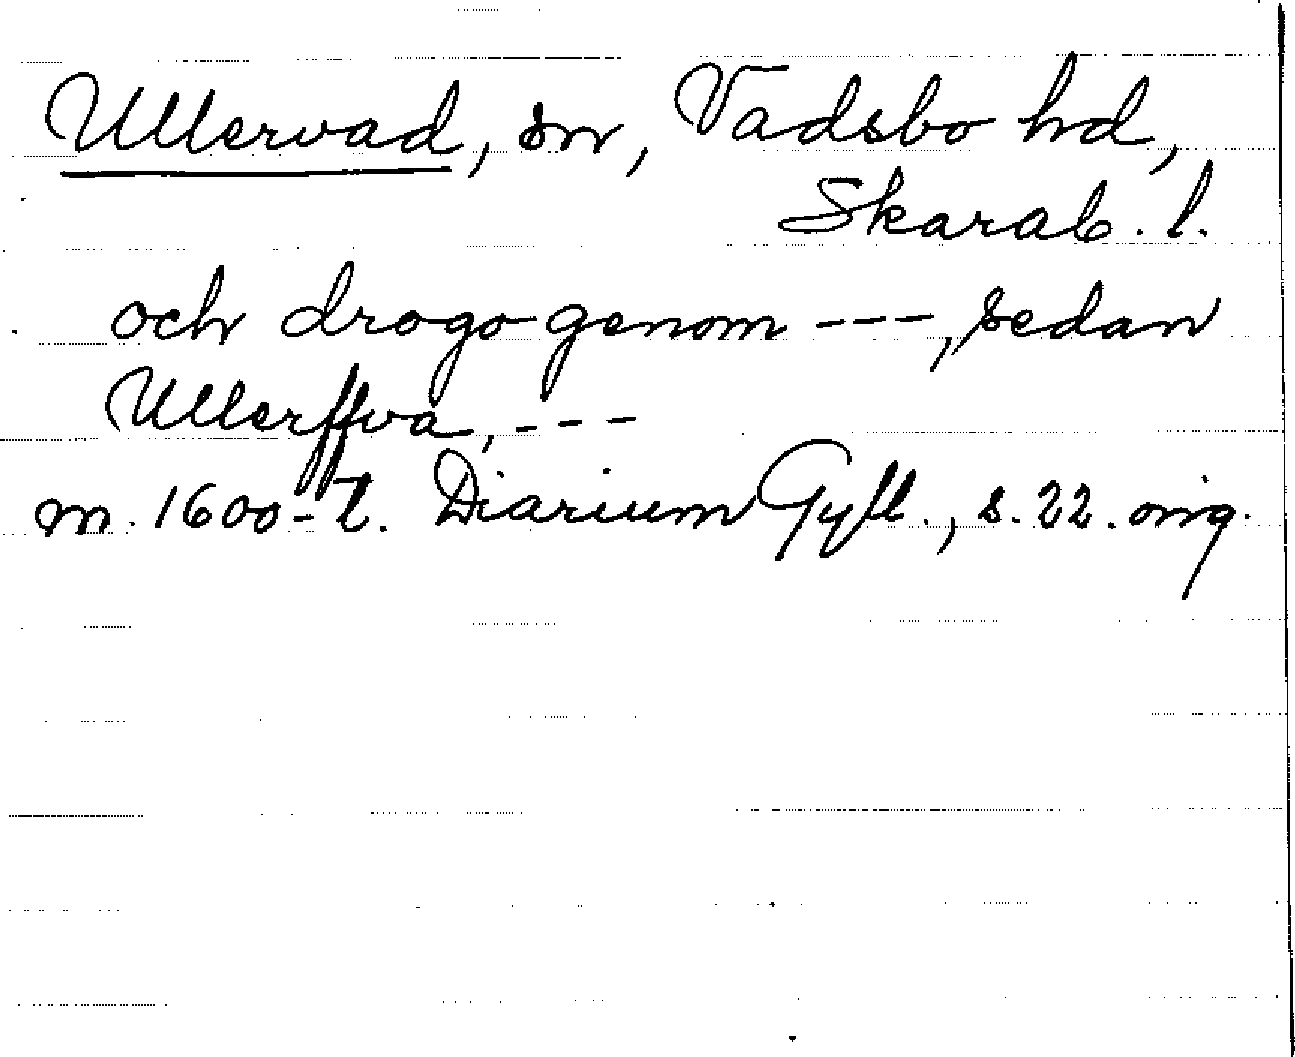 Ullervad, sn, Vadsbo hd,
Skarab. l.
och drogo genom ---, sedan
Ullerffva, ---
m. 1600-t. Diarium Gyll., s. 22. orig.